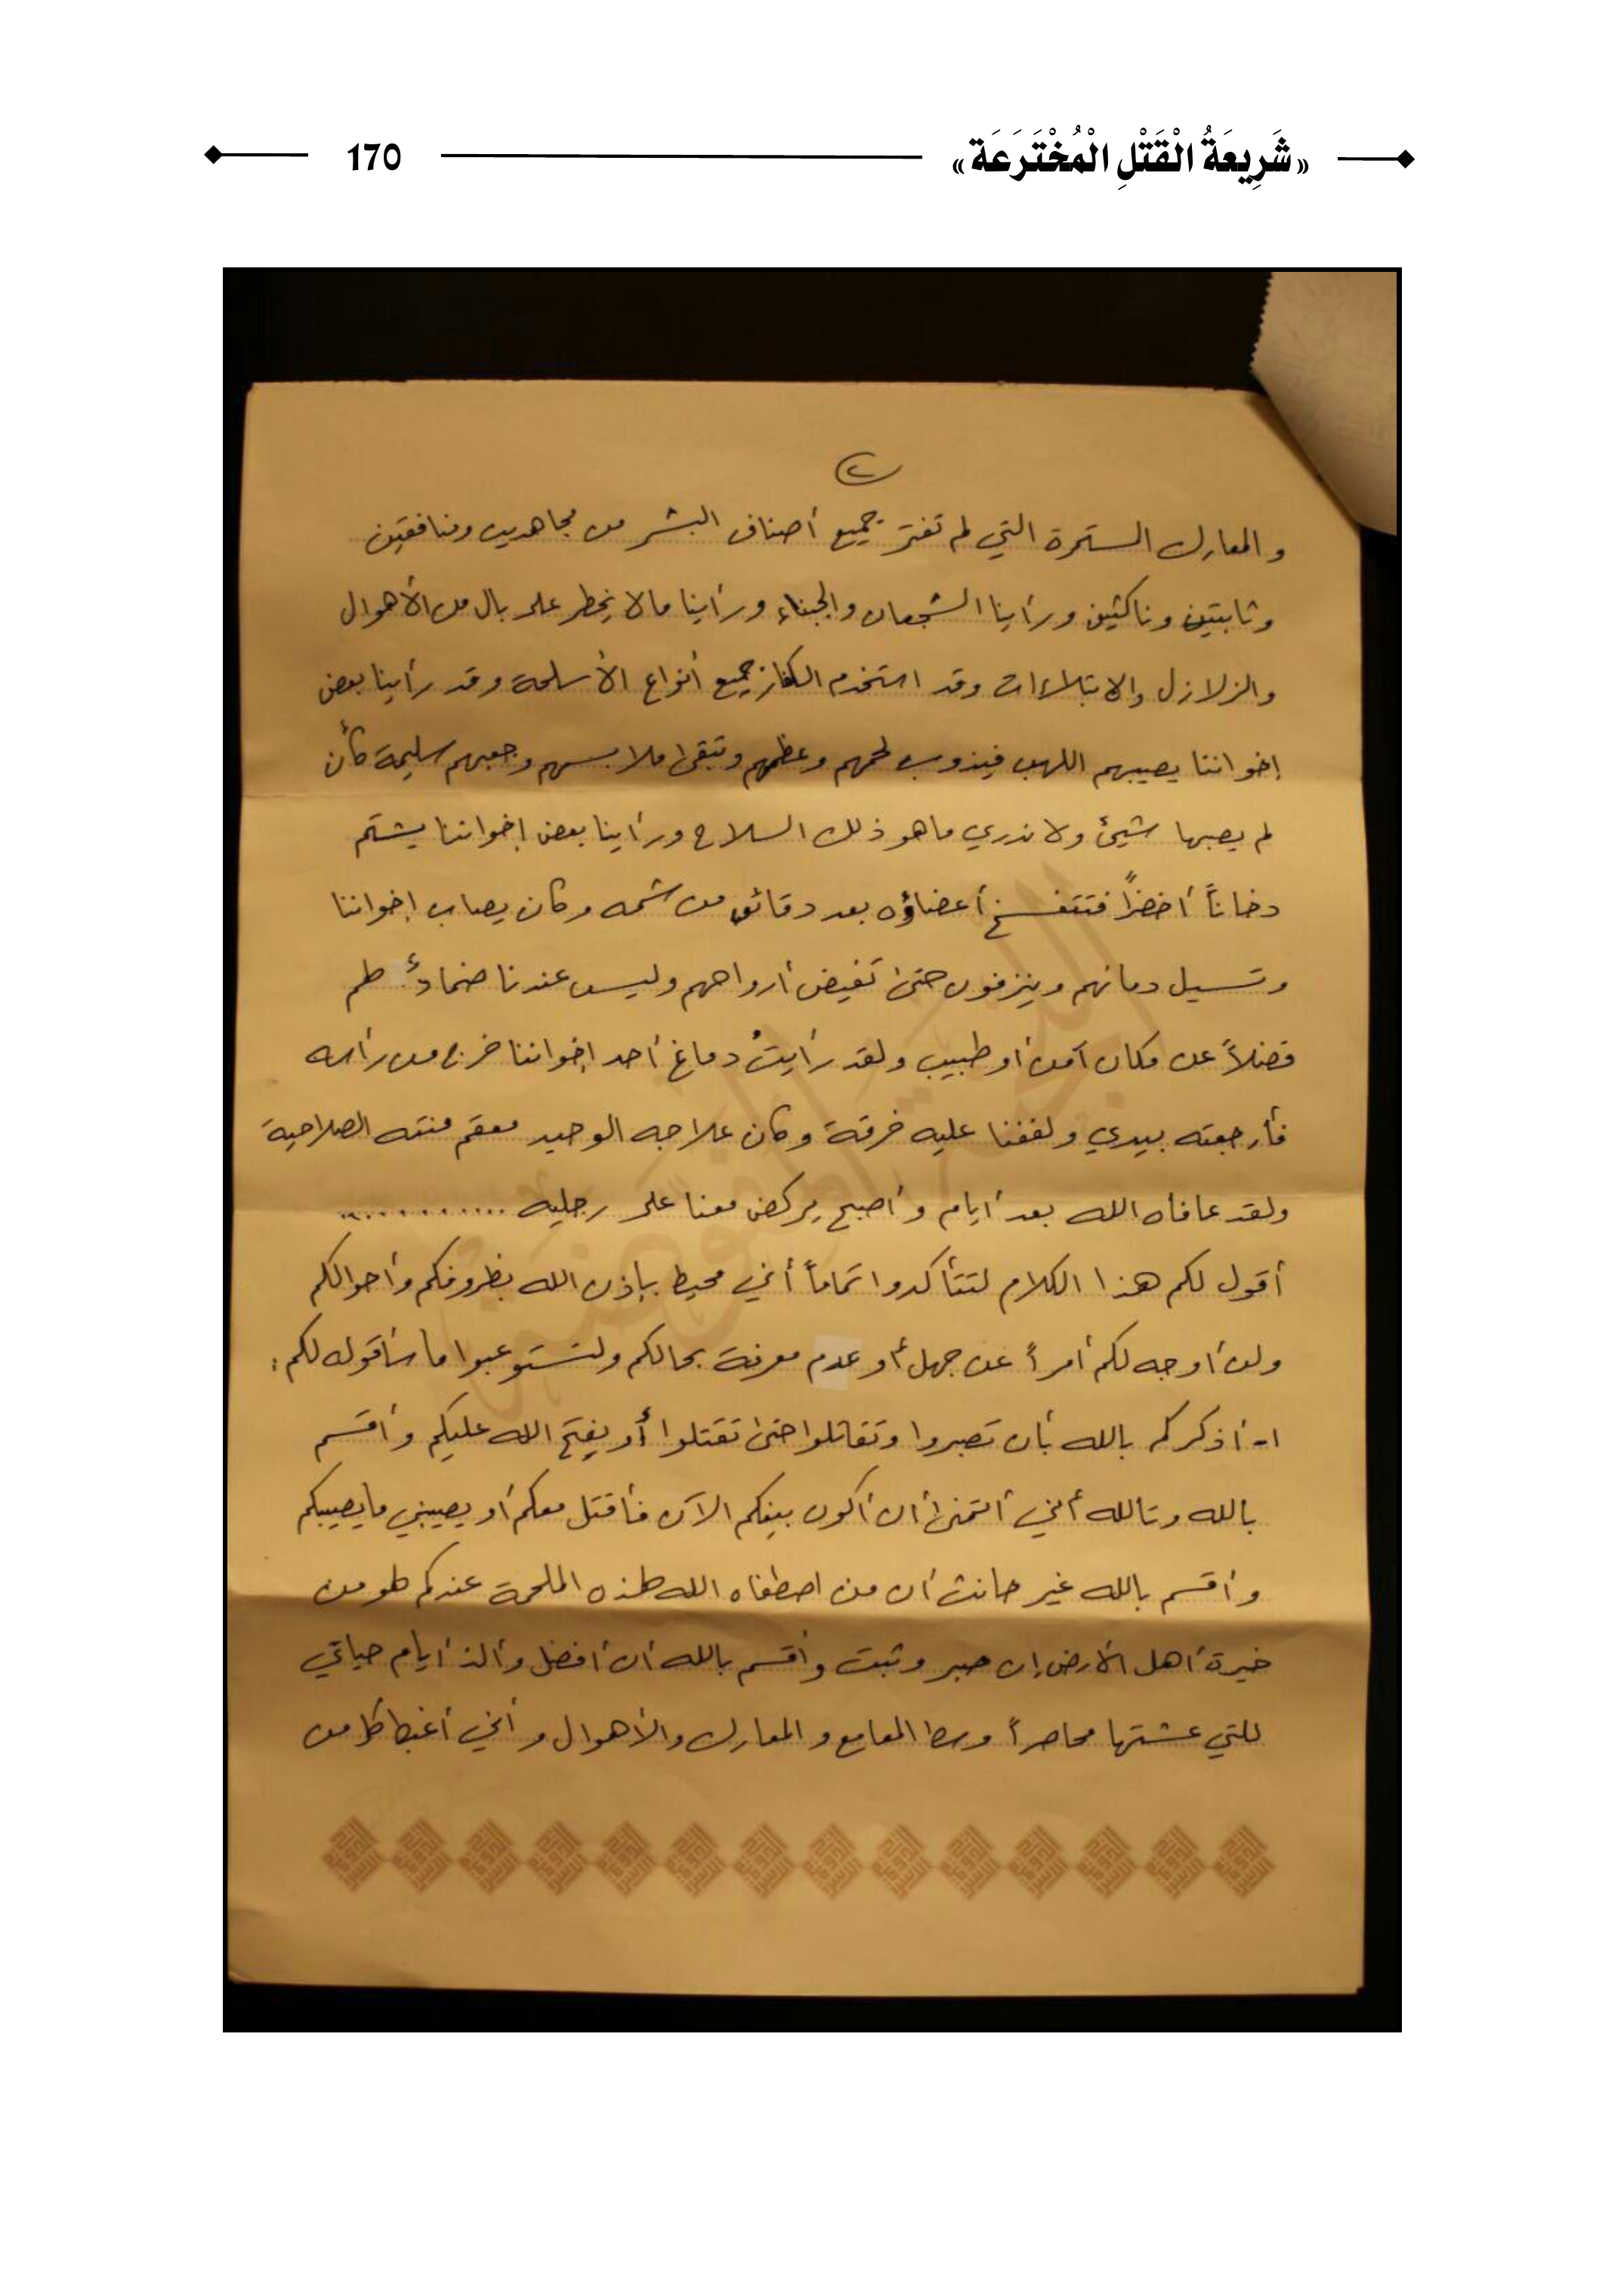 «شَرِيعَةُ الْقَتْلِ الْمُخْتَرَعَة» 170
٢
والمعارك المستمرة التي لم تفتر جميع أصناف البشر من مجاهدين ومنافقين
وثابتين وناكثين ورأينا الشجعان والجبناء ورأينا مالا يخطر على بال من الأهوال
والزلازل والابتلاءات وقد استخدم الكفار جميع أنواع الأسلحة وقد رأينا بعض
إخواننا يصيبهم اللهب فيذوب لحمهم وعظمهم وتبقى ملابسهم وجعبهم سليمة كأن
لم يصبها شيئ ولا ندري ماهو ذلك السلاح ورأينا بعض إخواننا يشتم
دخاناً أخضراً فتتفسخ أعضاؤه بعد دقائق من شمه وكان يصاب إخواننا
وتسيل دمائهم وينزفون حتى تفيض أرواحهم وليس عندنا ضمادٌ لهم
فضلاً عن مكان آمن أو طبيب ولقد رأيتُ دماغ أحد إخواننا خرج من رأسه
فأرجعته بيدي ولففنا عليه خرقة وكان علاجه الوحيد معقم منته الصلاحية
ولقد عافاه الله بعد أيام وأصبح يركض معنا على رجليه ............
أقول لكم هذا الكلام لتتأكدوا تماماً أني محيط بإذن الله بظروفكم وأحوالكم
ولن أوجه لكم أمراً عن جهل أو عدم معرفة بحالكم ولتستوعبوا ما سأقوله لكم:
١- أذكركم بالله بأن تصبروا وتقاتلوا حتى تقتلوا أو يفتح الله عليكم وأقسم
بالله وتالله أني أتمنى أن أكون بينكم الآن فأقتل معكم أو يصيبني مايصيبكم
وأقسم بالله غير حانث أن من اصطفاه الله لهذه الملحمة عندكم لهو من
خيرة أهل الأرض إن صبر وثبت وأقسم بالله أن أفضل وألذ أيام حياتي
للتي عشتها محاصراً وسط المعامع والمعارك والأهوال وأني أغبط كل من